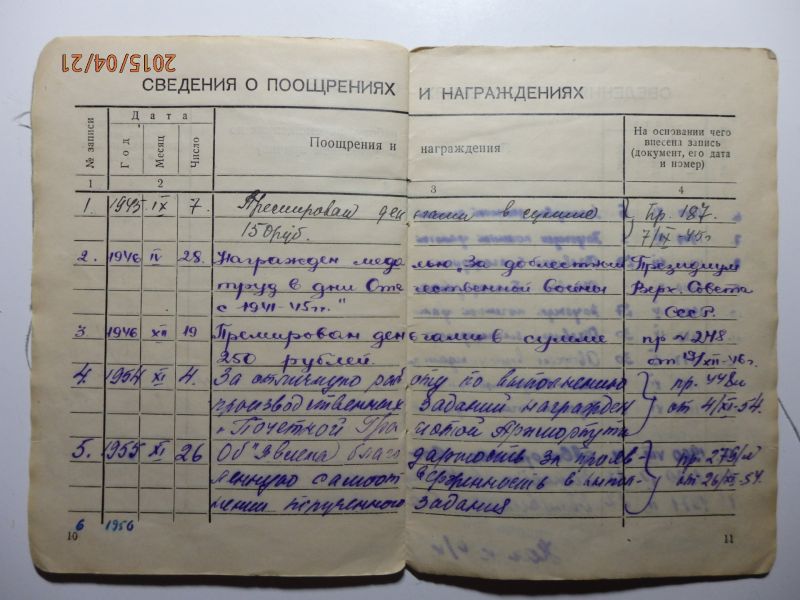 2015/04/21
СВЕДЕНИЯ О ПООЩРЕНИЯХ И НАГРАЖДЕНИЯХ
№ записи
Дата
Год
Месяц
Число
Поощрения и награждения
На основании чего
внесена запись
(документ, его дата
и номер)
1 2 3 4
1. 1945 IX 7. Премирован деньгами в сумме пр. 187.
150 руб. 7/IX-45г
2. 1946 IV 28. Награжден медалью „За доблестный Президиум
труд в дни Отечественной войны Верх. Совета
с 1941-45гг." СССР.
3 1946 XII 19 Премирован деньгами в сумме пр № 248
250 рублей. от 19/XII-46г.
4. 1954 XI 4. За отличную работу по выполнению пр. 448
производственных заданий награжден от 4/XI-54.
Почетной Грамотой
5. 1955 XI 26 Об"явлена благодарность за прояв- пр. 275/
ленную самоотверженность в выпол- от 26/XI-54.
нении порученного задания
6 1956
10 11